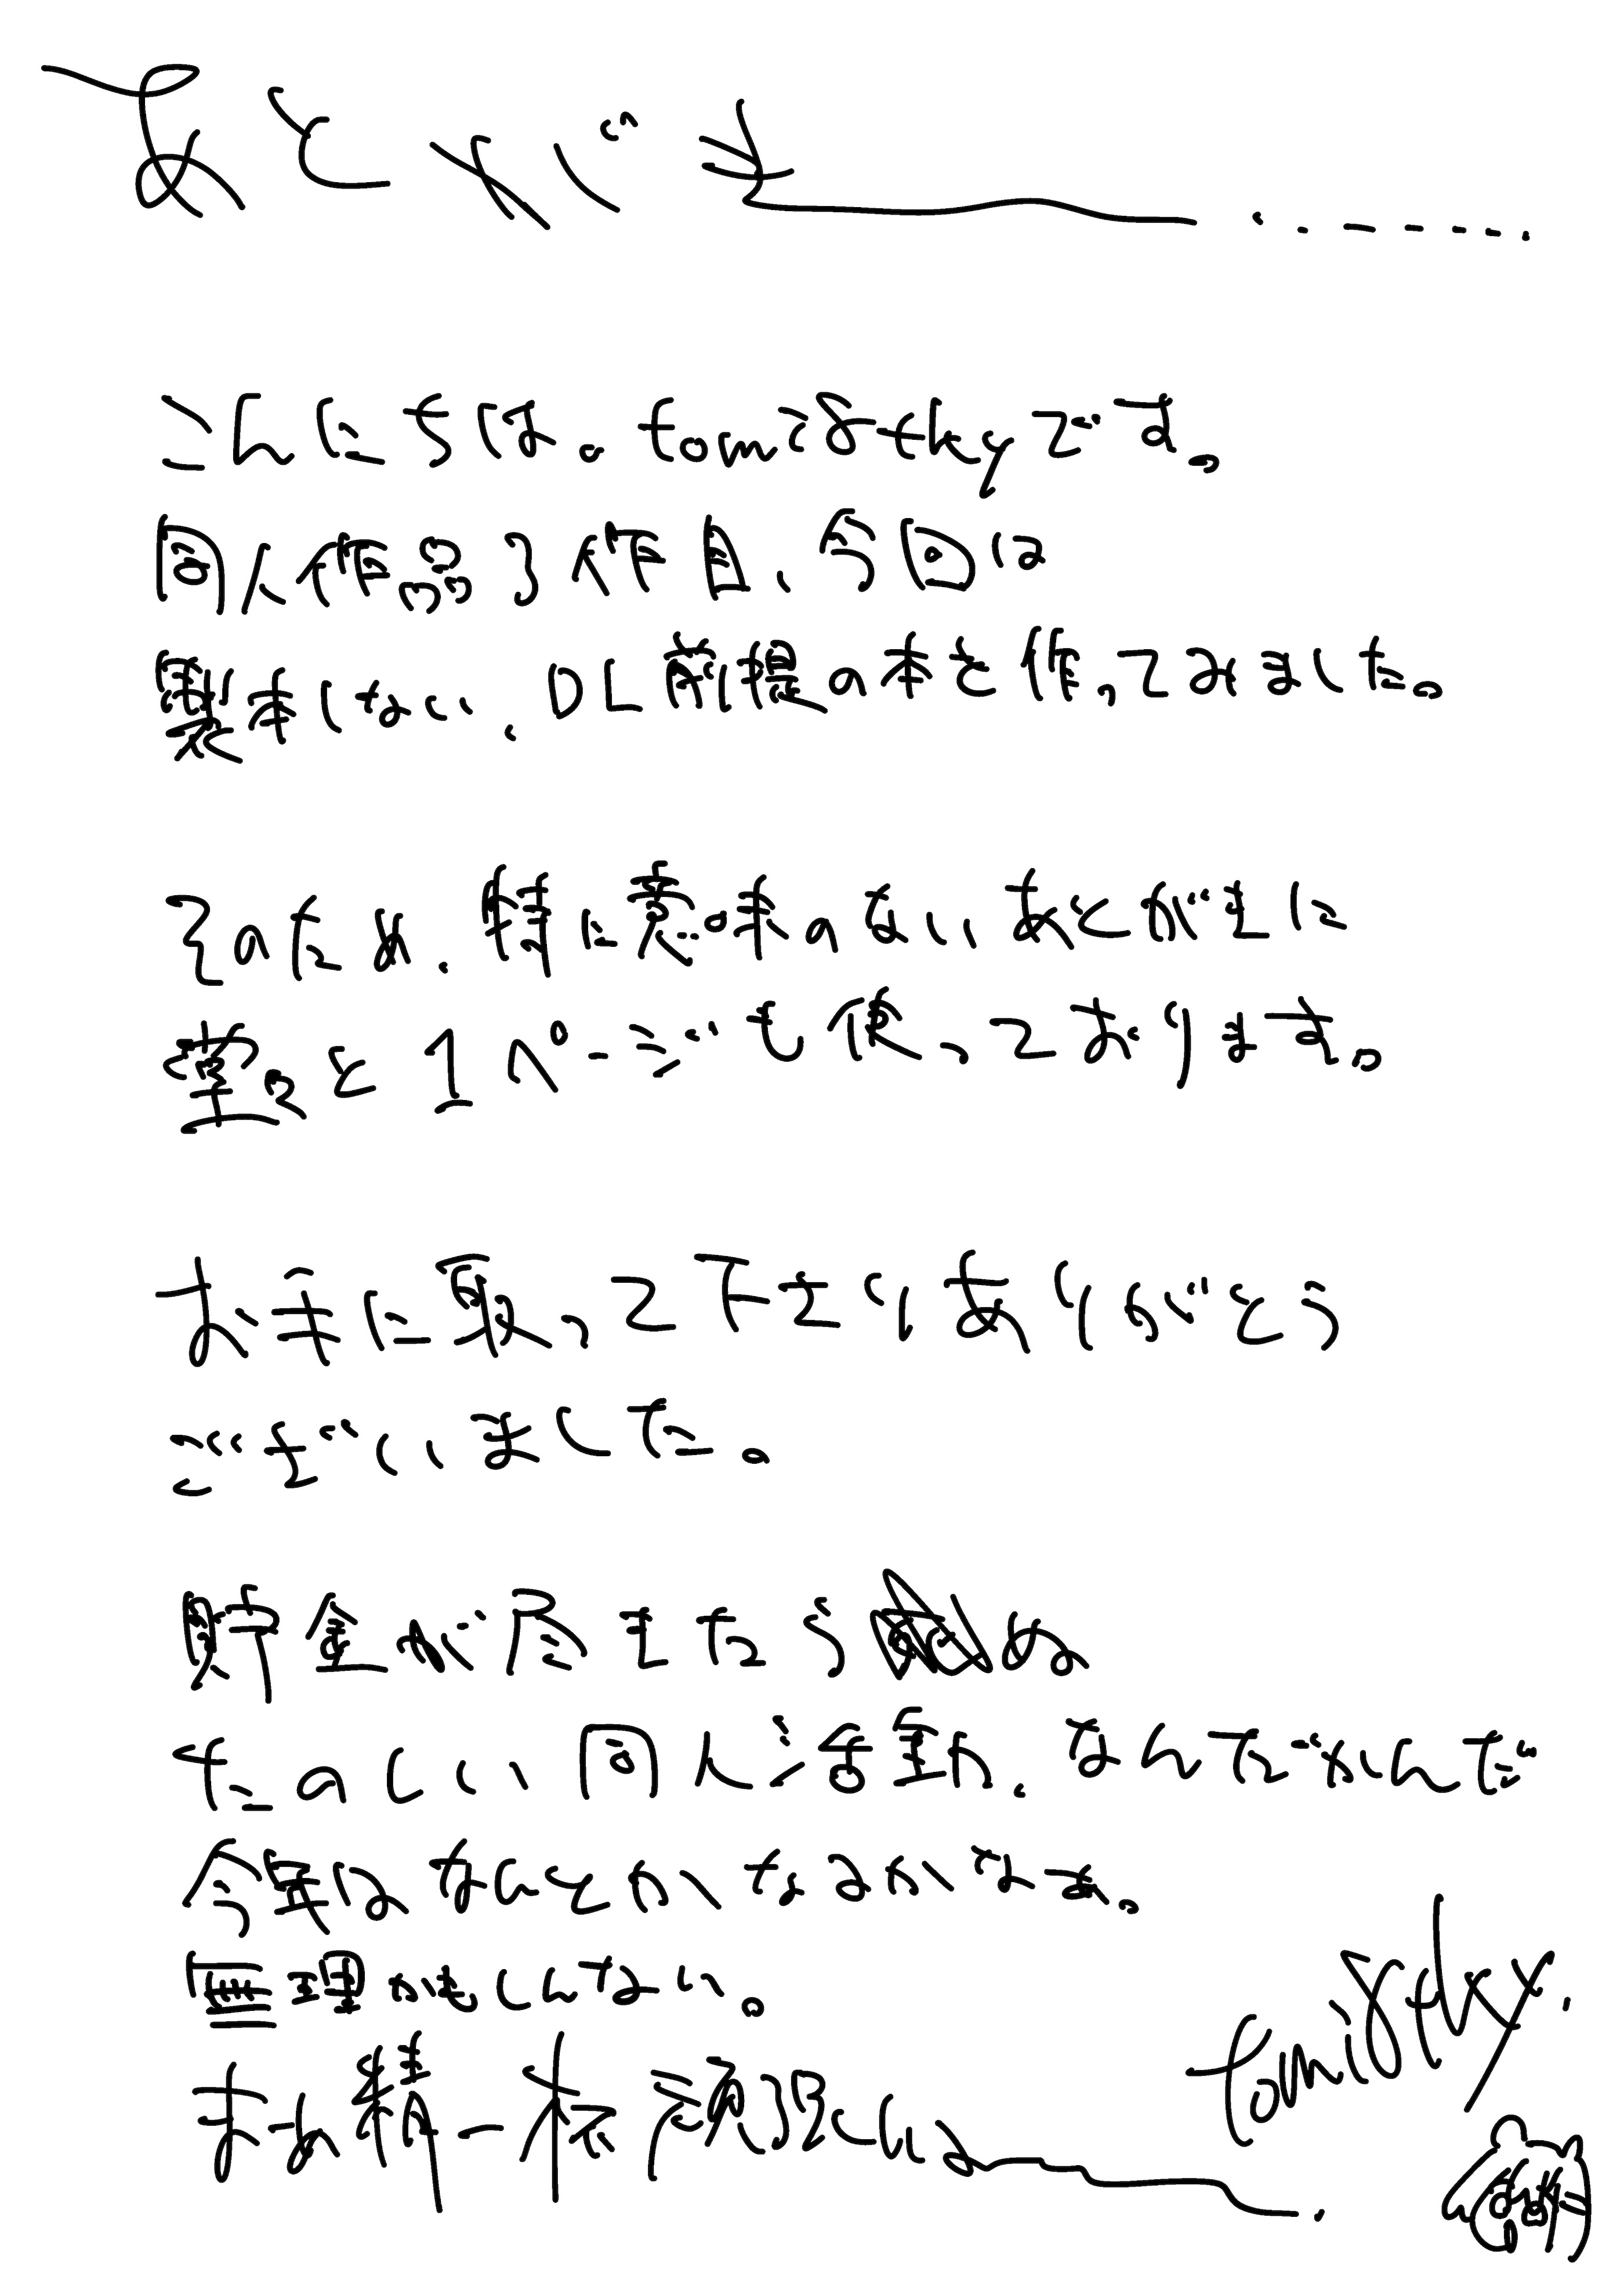 あとがき
こんにちは。tomi8tkyです。
同人作品3作目、今回は
製本しない、DL前提の本を作ってみました。
そのため、特に意味のないあとがきに
堂々と1ページも使っております。
お手に取って下さりありがとう
ございました。
貯金が尽きたら
たのしい同人活動、なんだかんだ
今年はなんとかなるかなぁ。
無理かもしんない。
まぁ精一杯頑張しい
tomi8tky.